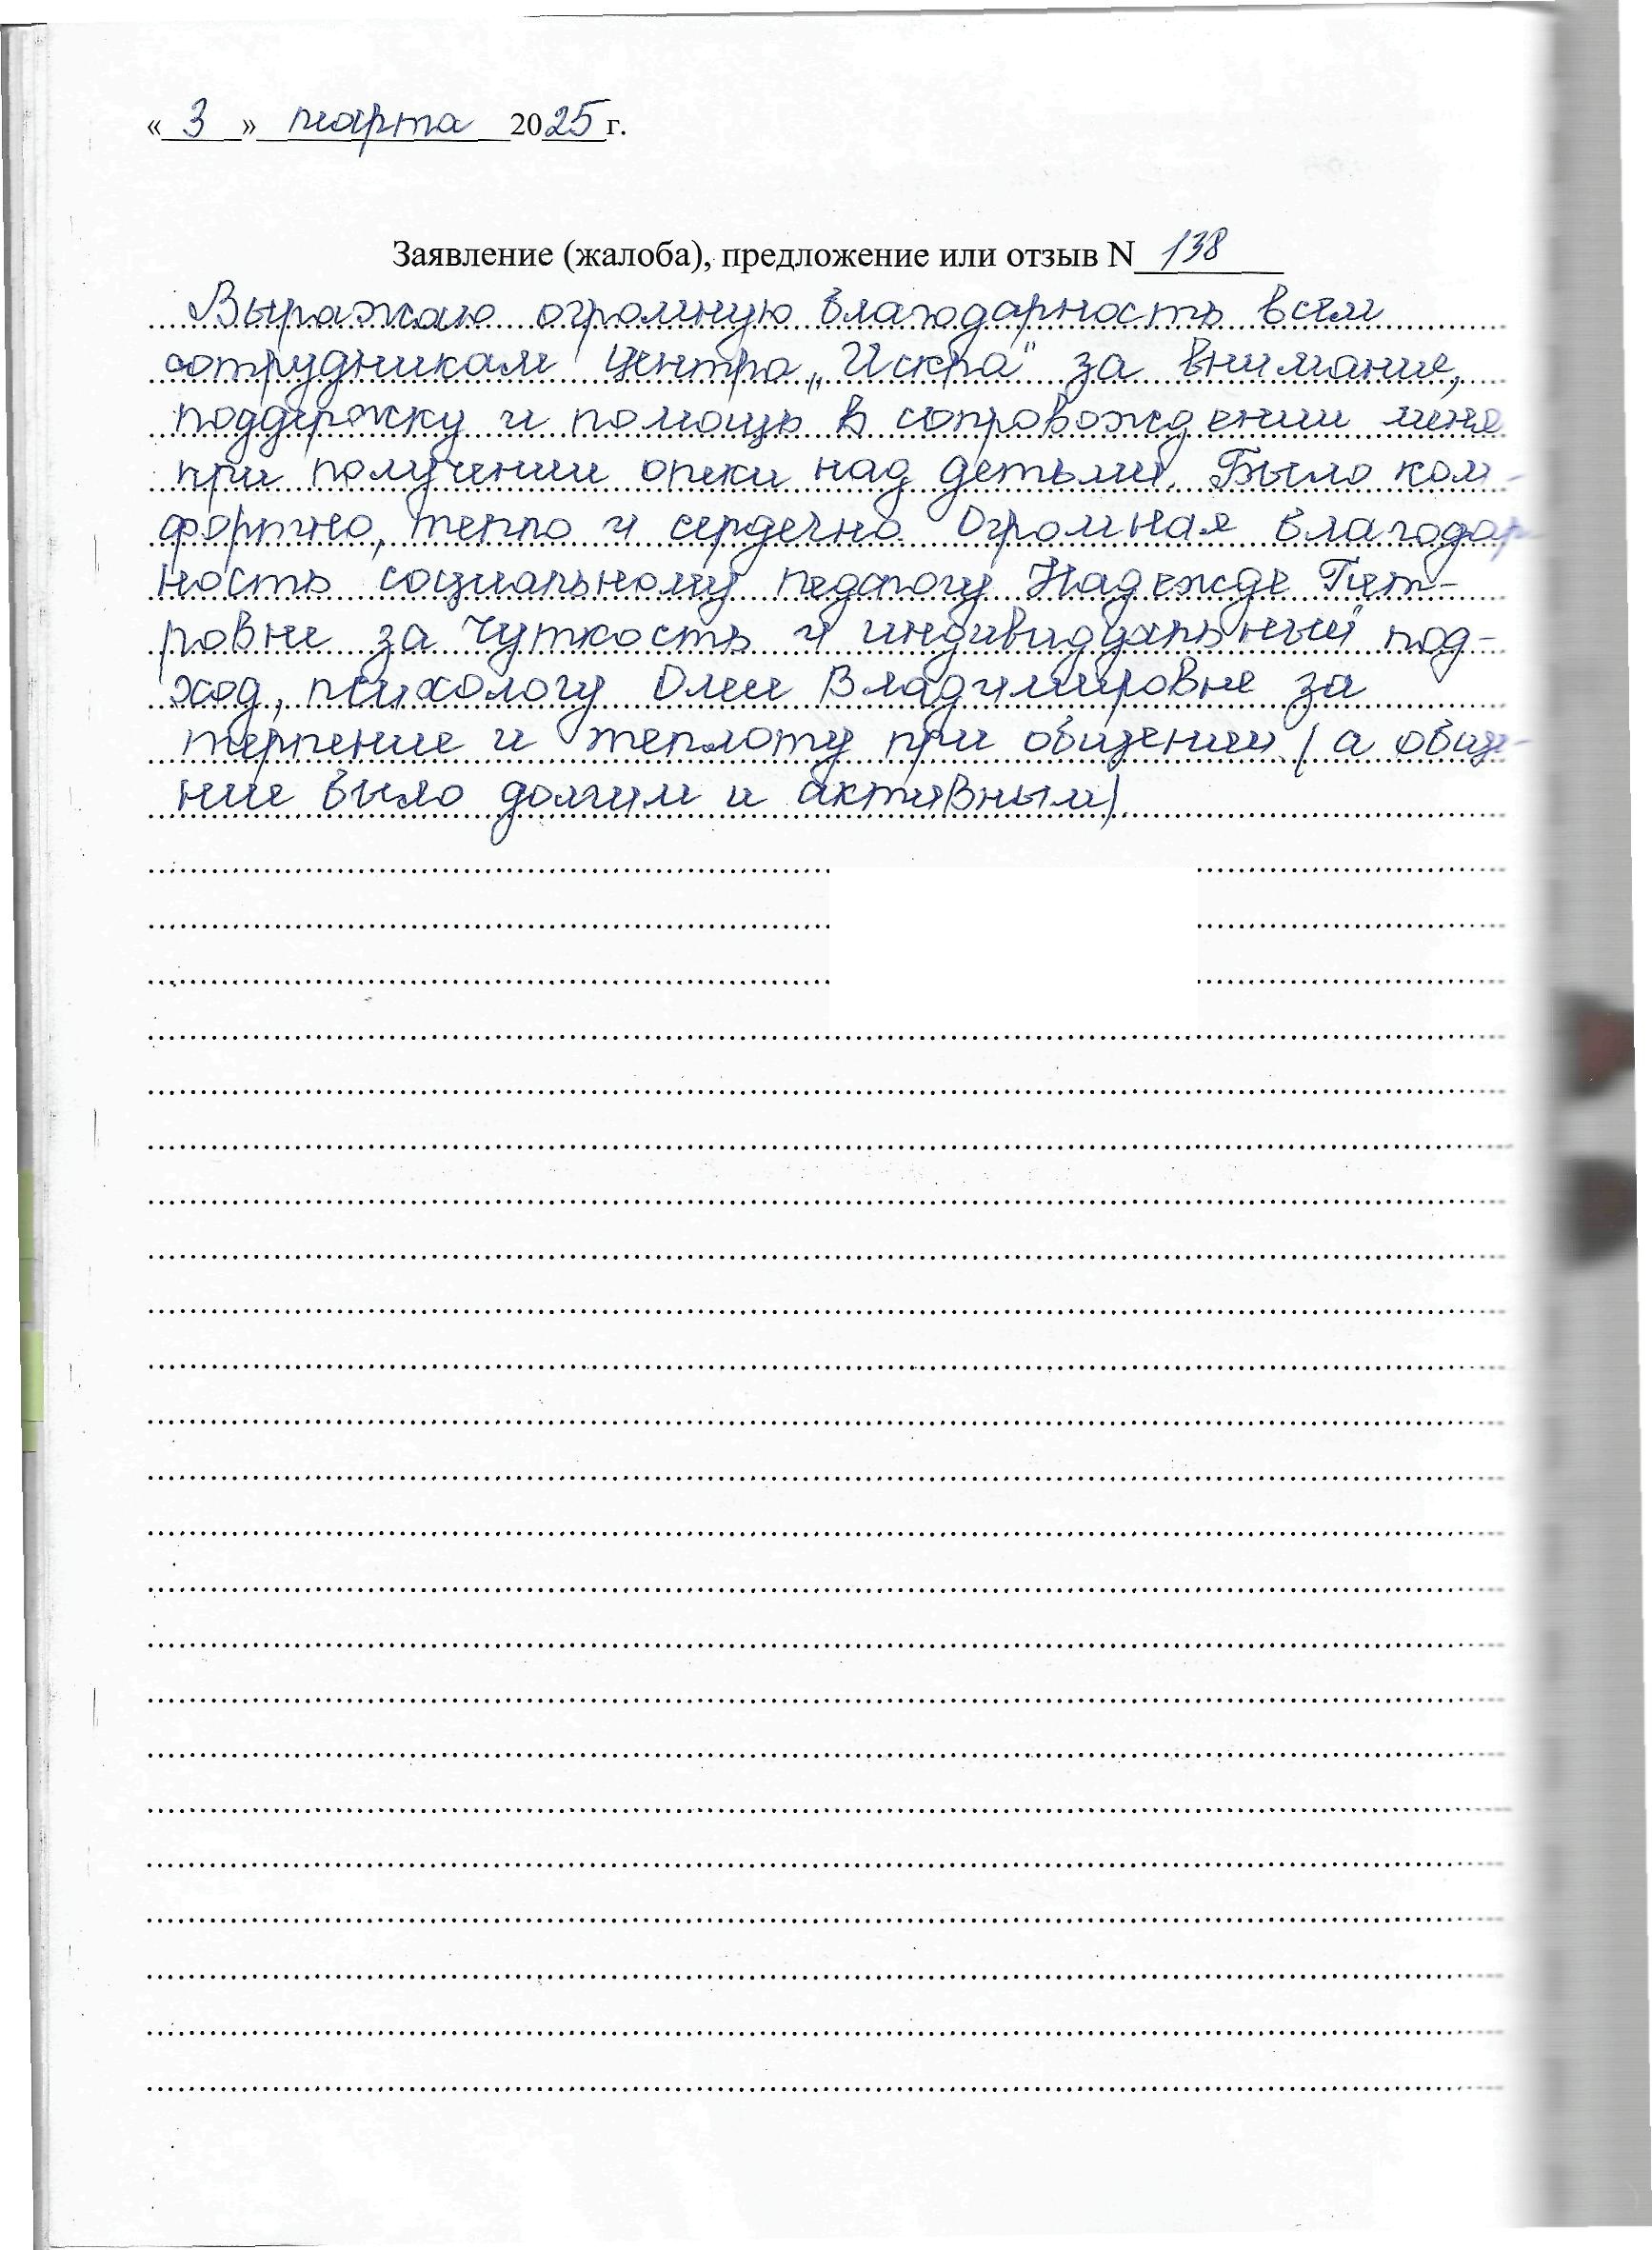 « 3 » марта 2025 г.
Заявление (жалоба), предложение или отзыв N 138
Выражаю огромную благодарность всем
сотрудникам Центра „Искра" за внимание,
поддержку и помощь в сопровождении меня
при получении опеки над детьми. Было ком-
фортно, тепло и сердечно. Огромная благодар-
ность социальному педагогу Надежде Пет-
ровне за чуткость и индивидуальный под-
ход, психологу Олее Владимировне за
терпение и теплоту при общении (а обще-
ние было долгим и активным)